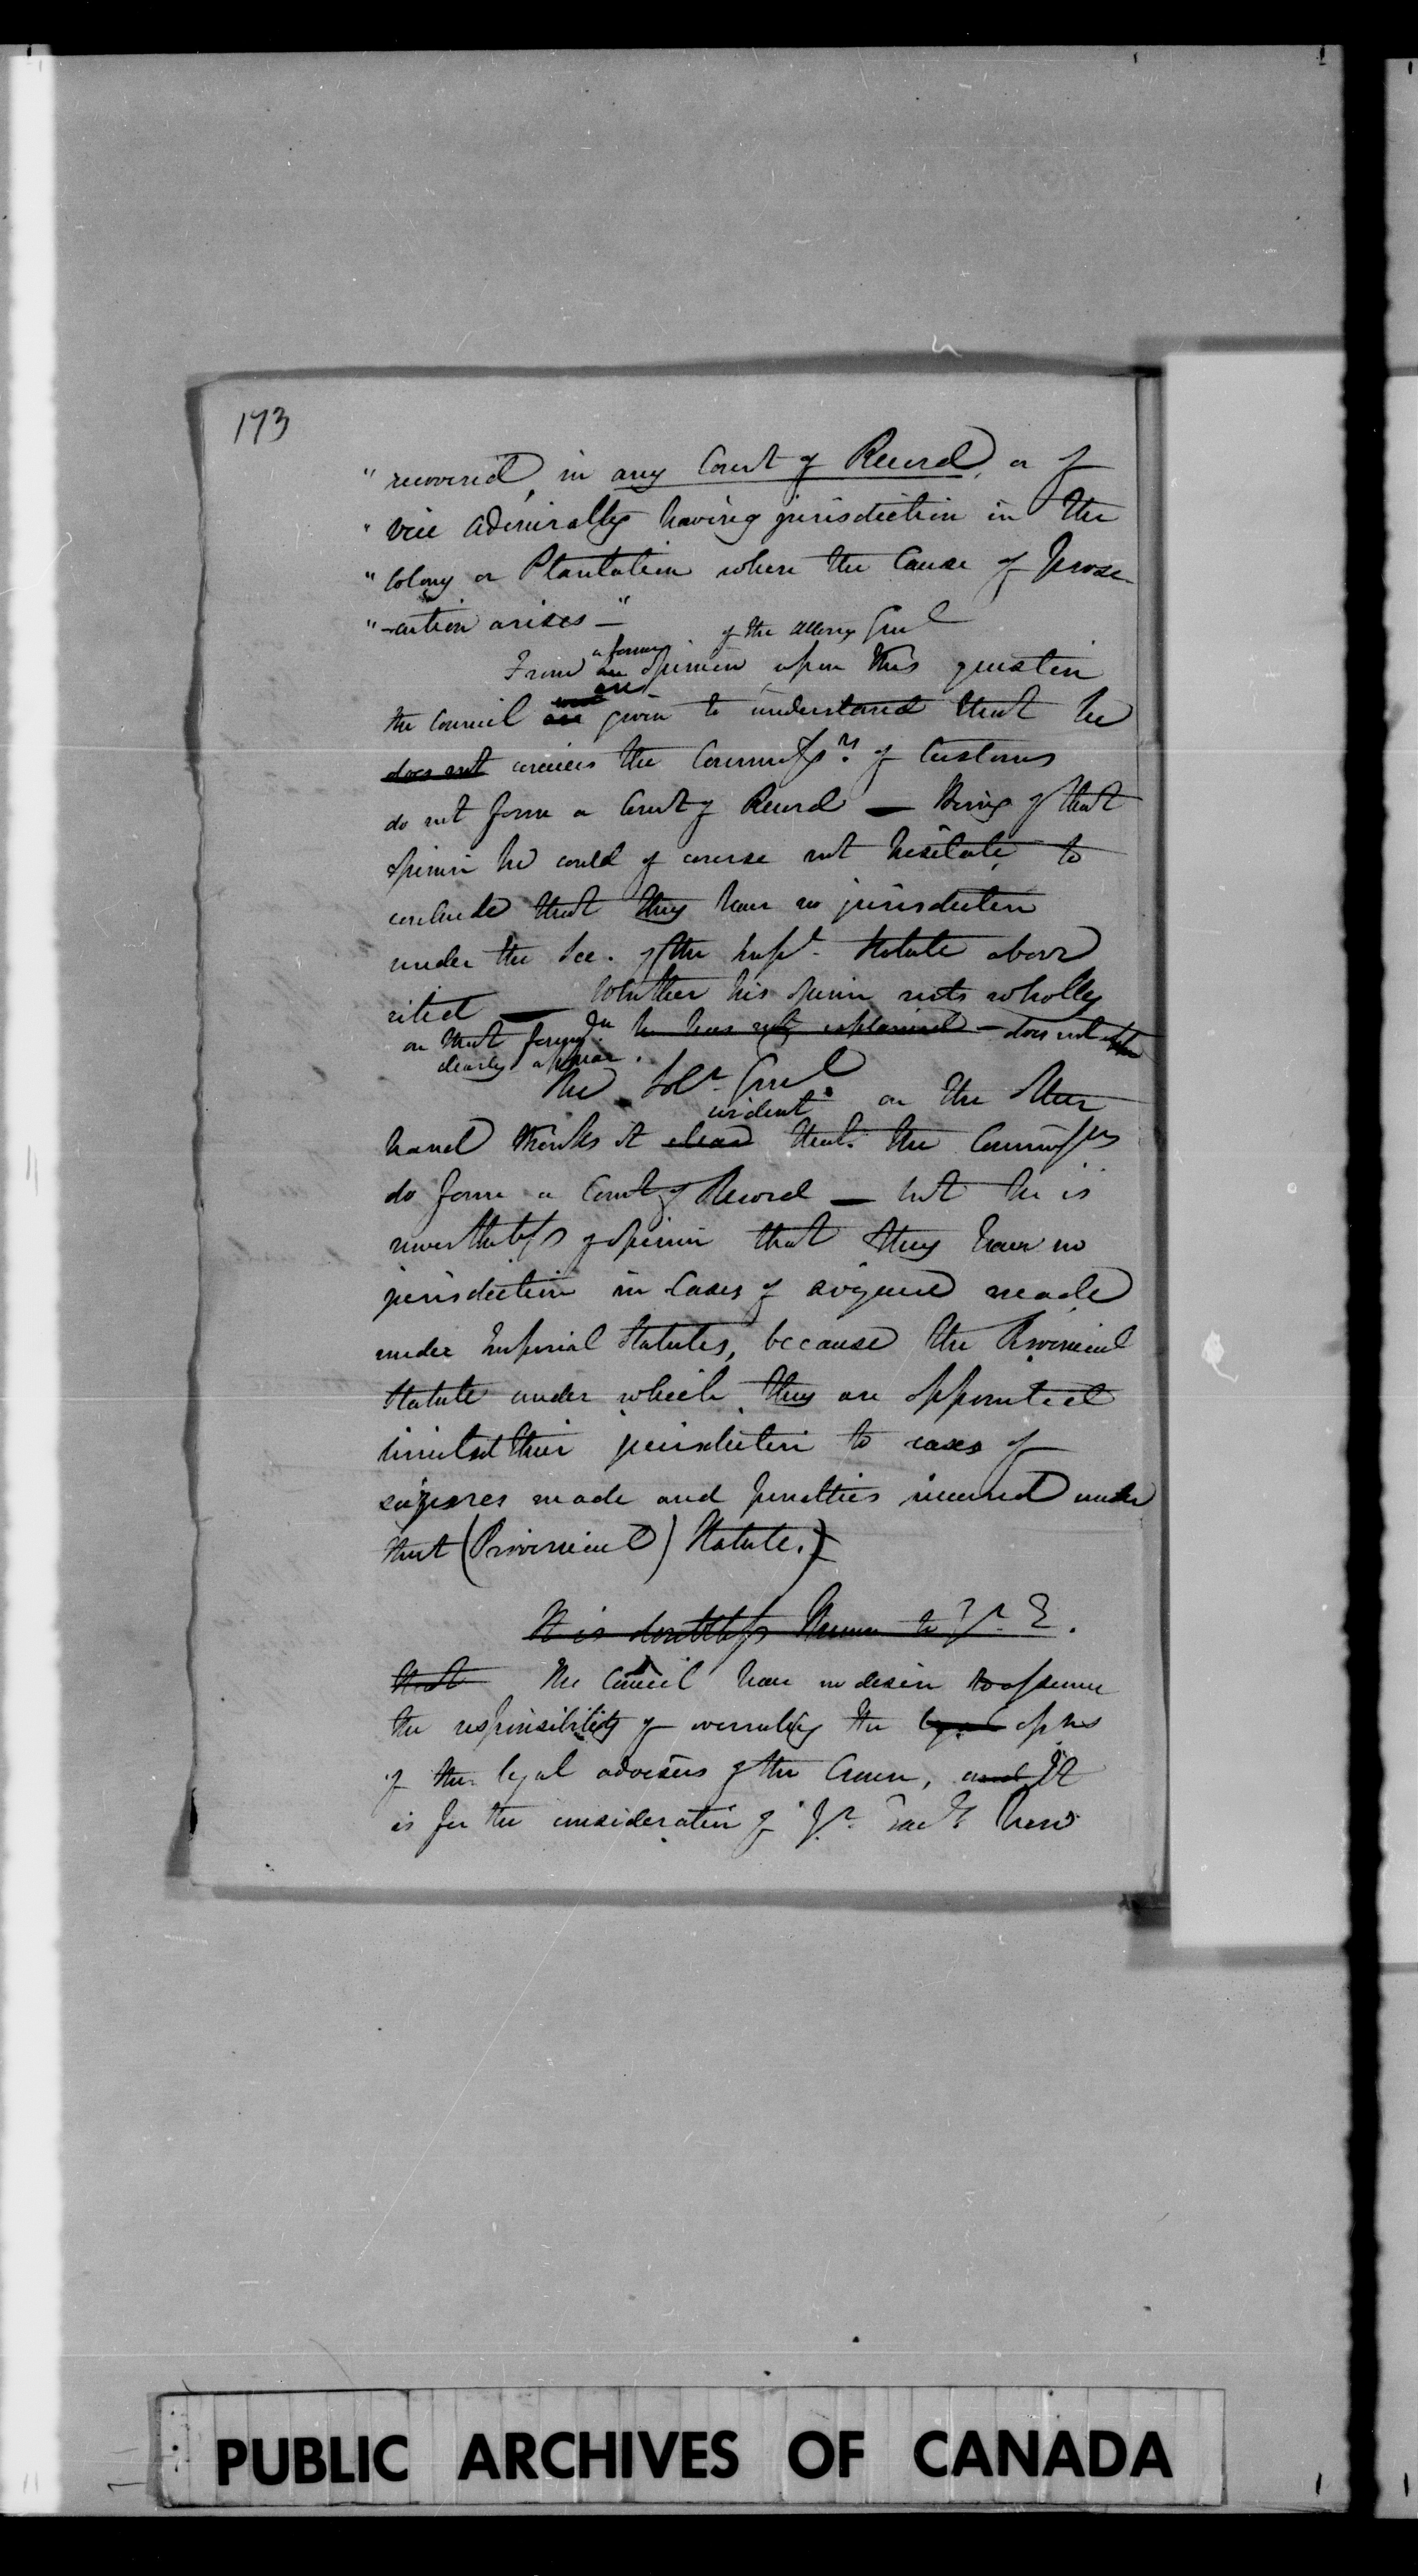 173
" recovered, in any Court of Record, or of
" vice admiralty having jurisdiction in the
" Colony or Plantation where the Cause of Prose-
" -cution arises — "
a former of the Attorney Genl
From an opinion upon this question
are
the Council are given to understand that he
does not conceives the Commissrs. of Customs
do not form a Court of Record — Being of that
opinion he could of course not hesitate to
conclude that they have no jurisdiction
under the Sec. of the Impl. Statute above
cited — Whether his opinion rests wholly
on that he has not explained — does not
clearly appear.
The Solr. Genl. on the other
evident
hand thinks it clear that the Commissrs
do form a Court of Record — but he is
nevertheless of opinion that they have no
jurisdiction in Cases of seizures made
under Imperial Statutes, because the Provincial
Statute under which they are appointed
limited their jurisdiction to cases of
seizures made and penalties incurred under
that (Provincial) Statute.
It is doubtless known to Yr. E.
that The Council have no desire to assume
the responsibility of overruling the legal opns
of the legal advisers of the Crown, and It
is for the consideration of Yr. how
PUBLIC ARCHIVES OF CANADA